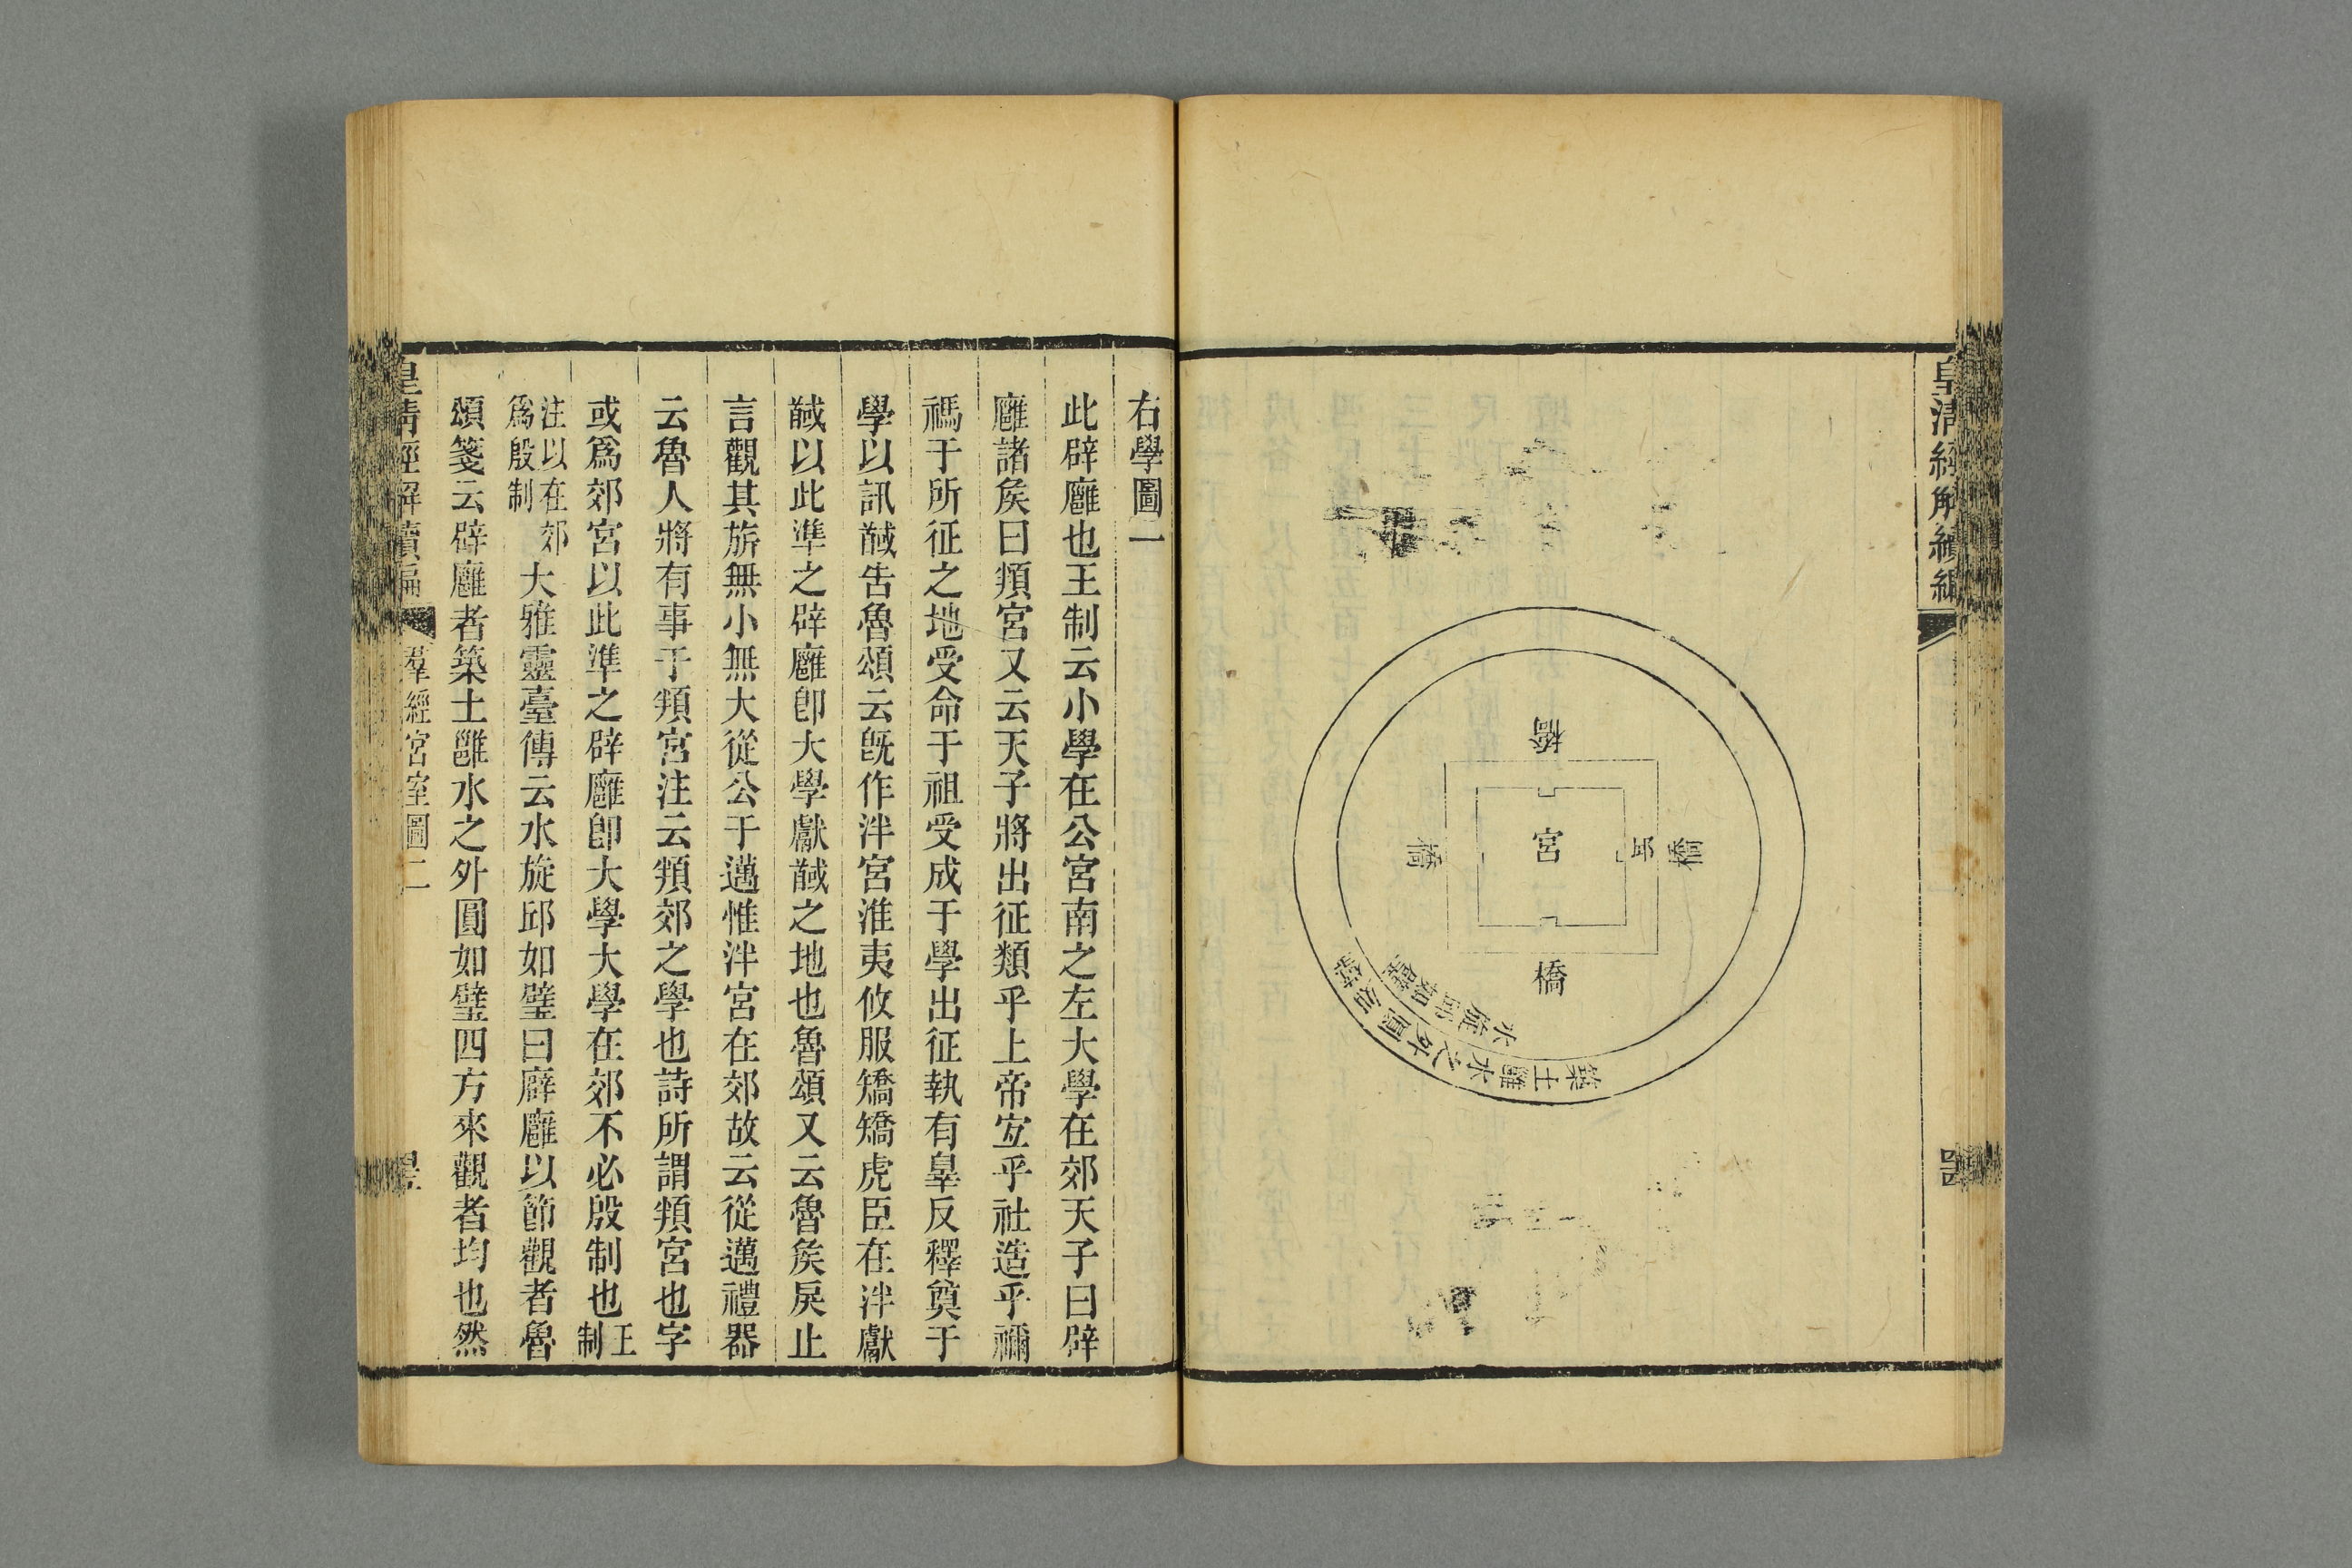 皇清經解續編
橋
橋
宮
橋
橋
水旋邱如璧
築土雝水之外圓如璧
右學圖一
此辟廱也王制云小學在公宮南之左大學在郊天子曰辟
廱諸矦曰頖宮又云天子將出征類乎上帝宜乎社造乎禰
禡于所征之地受命于祖受成于學出征執有辠反釋奠于
學以訊馘告魯頌云旣作泮宮淮夷攸服矯矯虎臣在泮獻
馘以此準之辟廱卽大學獻馘之地也魯頌又云魯矦戾止
言觀其旂無小無大從公于邁惟泮宮在郊故云從邁禮器
云魯人將有事于頖宮注云頖郊之學也詩所謂頖宮也字
或爲郊宮以此準之辟廱卽大學大學在郊不必殷制也王制
注以在郊爲殷制大雅靈臺傳云水旋邱如璧曰廦廱以節觀者魯
頌箋云辟廱者築土雝水之外圓如璧四方來觀者均也然
皇清經解續編
羣經宮室圖二